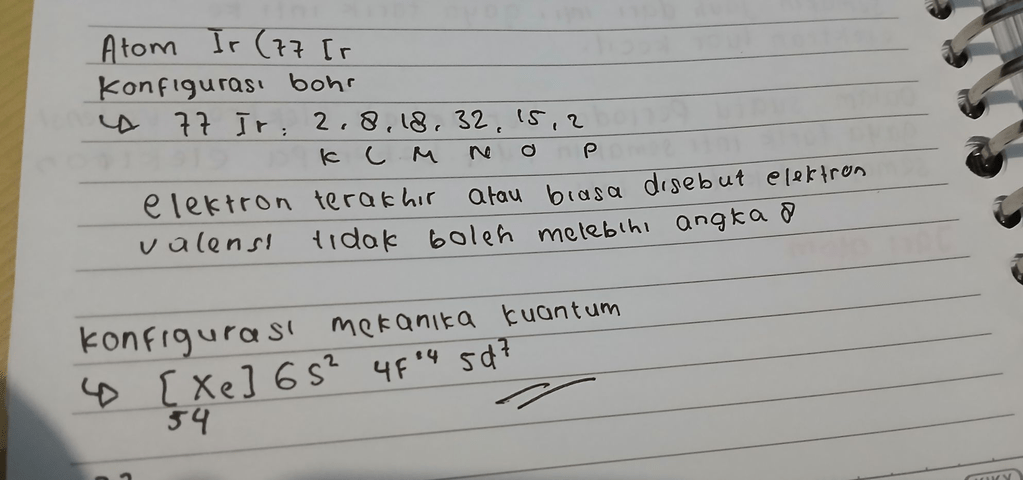 Atom Ir (77 Ir
Konfigurasi bohr
↳ 77 Ir : 2, 8, 18, 32, 15, 2
K L M N O P
elektron terakhir atau biasa disebut elektron
valensi tidak boleh melebihi angka 8
Konfigurasi mekanika kuantum
↳ [Xe] 6s² 4f¹⁴ 5d⁷
54